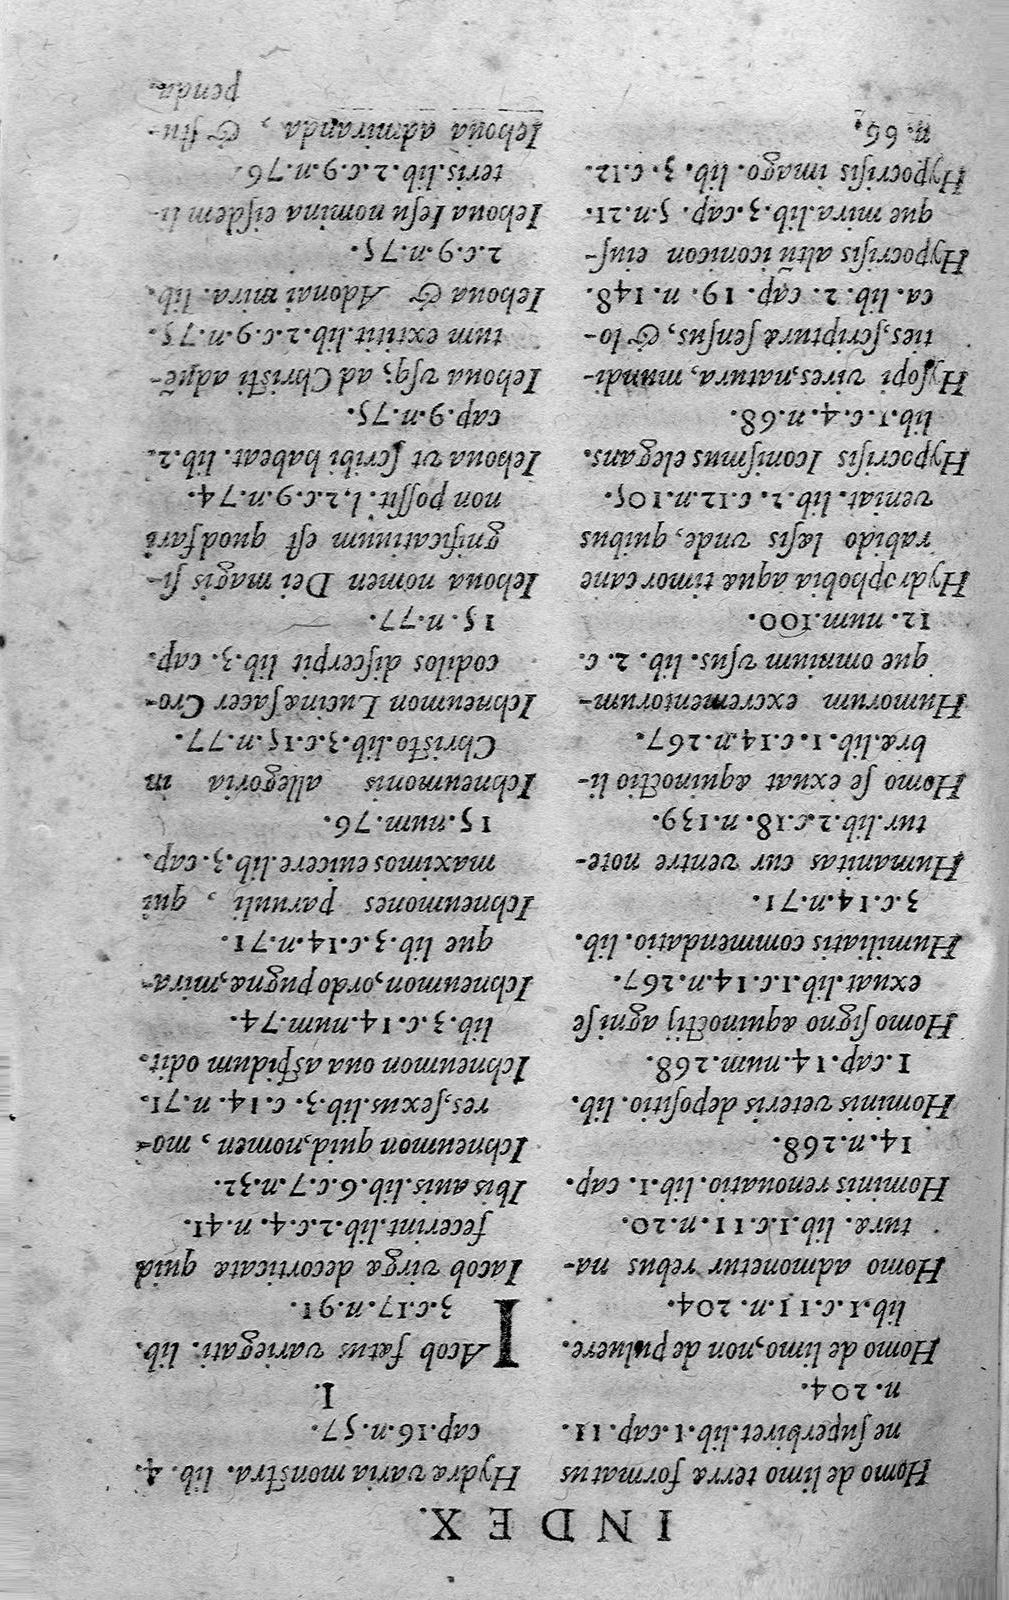 INDEX.
Homo de limo terra formatus
ne ſuperbiret.lib.1.cap.11.
n.204.
Homo de limo,non de puluere.
lib.1.c.11.n.204.
Homo admonetur rebus na-
turæ. lib.1.c.11.n.20.
Hominis renouatio. lib.1. cap.
14.n.268.
Hominis veteris depoſitio. lib.
1.cap.14.num.268.
Homo ſigno æquinoctij agni ſe
exuat.lib.1.c.14.n.267.
Humiliatis commendatio. lib.
3.c.14.n.71.
Humanitas cur ventre note-
tur.lib.2.c.18.n.139.
Homo ſe exuat æquinoctio li-
bræ.lib.1.c.14.n.267.
Humorum excrementorum-
que omnium vſus. lib. 2. c.
12. num.100.
Hydrophobia aquæ timor cane
rabido læſis vnde, quibus
veniat. lib. 2. c.12.n.105.
Hypocriſis Iconiſmus elegans.
lib.1.c.4.n.68.
Hyſopi vires,natura, mundi-
ties,ſcripturæ ſenſus, & lo-
ca. lib. 2. cap. 19. n. 148.
Hypocriſis altũ iconicon eiuſ-
que mira.lib.3.cap. 5.n.21.
Hypocriſis imago. lib. 3. c.12.
n.66.
Hydræ varia monſtra. lib. 4.
cap.16.n.57.
I.
IAcob fœtus variegati. lib.
3.c.17.n.91.
Iacob virgæ decorticatæ quid
fecerint.lib.2.c.4. n.41.
Ibis auis.lib.6.c.7.n.32.
Ichneumon quid,nomen, mo-
res,ſexus.lib.3. c.14. n.71.
Ichneumon oua aſpidum odit.
lib.3.c.14.num.74.
Ichneumon,ordo pugnæ,mira-
que lib.3.c.14.n.71.
Ichneumones paruuli, qui
maximos euicere.lib.3.cap.
15.num.76.
Ichneumonis allegoria in
Chriſto.lib.3.c.15.n.77.
Ichneumon Lucinæ ſacer Cro-
codilos diſcerpit lib.3. cap.
15.n.77.
Iehoua nomen Dei magis ſi-
gnificatiuum eſt quod fari
non poſſit. l.2.c.9.n.74.
Iehoua vt ſcribi habeat. lib.2.
cap.9.n.75.
Iehoua vſq; ad Chriſti aduẽ-
tum extitit.lib.2.c.9.n.75.
Iehoua & Adonai mira. lib.
2.c.9.n.75.
Iehoua Ieſu nomina eiſdem li-
teris.lib.2.c.9.n.76.
Iehoua admiranda, & ſtu-
penda.